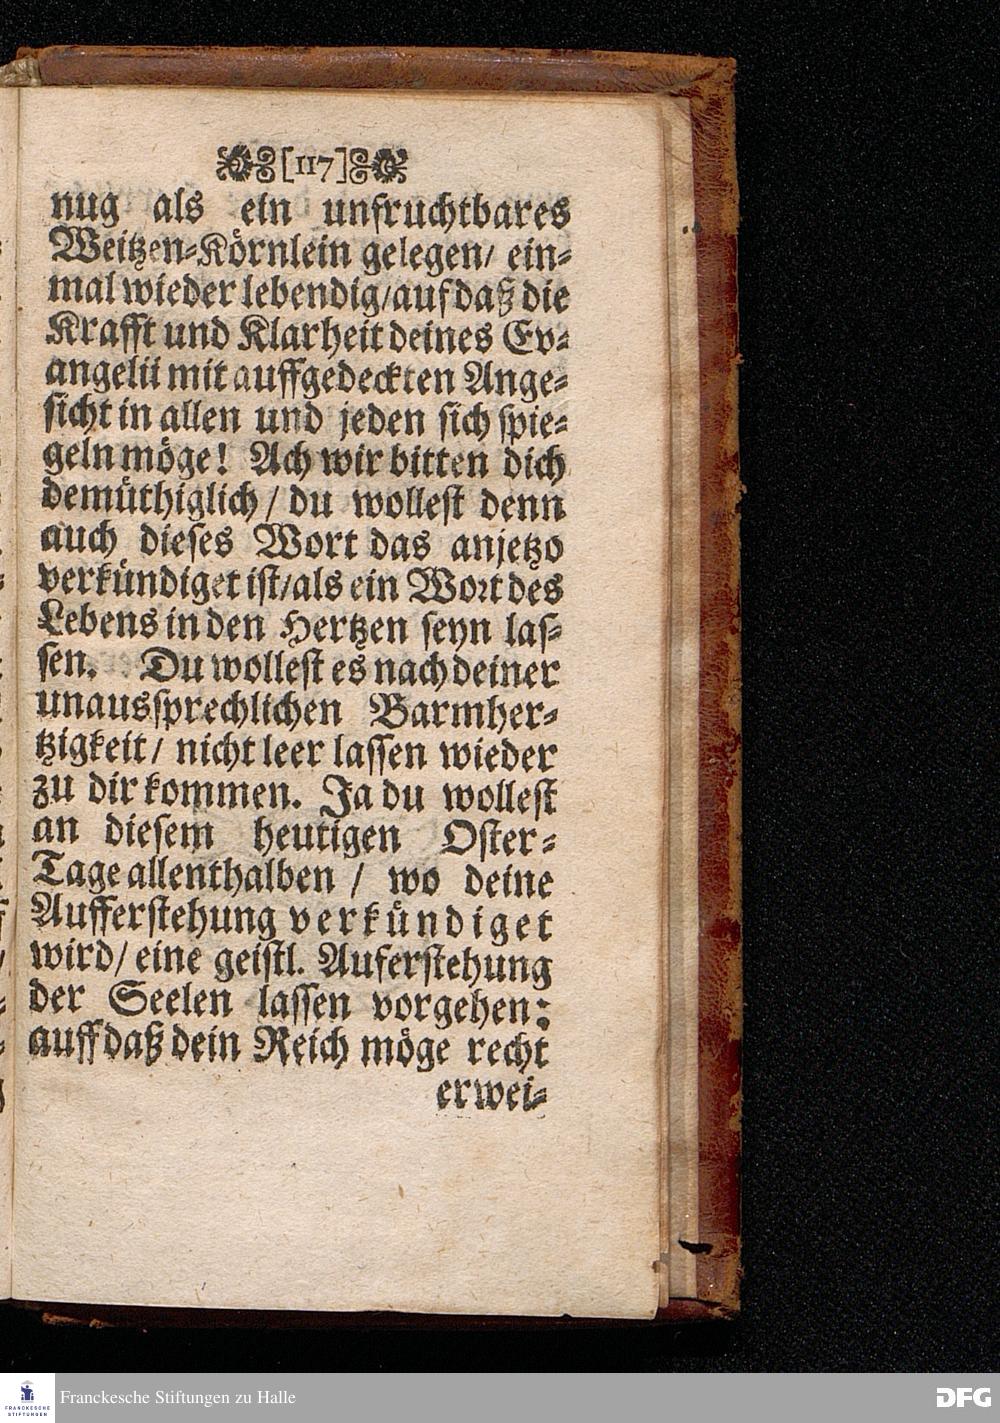 [117]
nug als ein unfruchtbares
Weitzen-Körnlein gelegen/ ein-
mal wieder lebendig/auf daß die
Krafft und Klarheit deines Ev-
angelii mit auffgedeckten Ange-
sicht in allen und jeden sich spie-
geln möge! Ach wir bitten dich
demüthiglich/ du wollest denn
auch dieses Wort das anjetzo
verkündiget ist/als ein Wort des
Lebens in den Hertzen seyn las-
sen. Du wollest es nach deiner
unaussprechlichen Barmher-
tzigkeit/ nicht leer lassen wieder
zu dir kommen. Ja du wollest
an diesem heutigen Oster-
Tage allenthalben / wo deine
Aufferstehung verkündiget
wird/ eine geistl. Auferstehung
der Seelen lassen vorgehen:
auff daß dein Reich möge recht
erwei-
FRANCKESCHE
STIFTUNGEN
Franckesche Stiftungen zu Halle
DFG